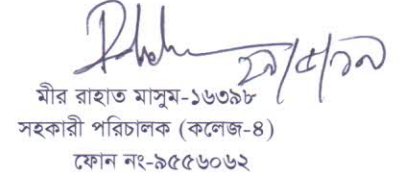 ২৯/৫/১৯
মীর রাহাত মাসুম-১৬৩৯৮
সহকারী পরিচালক (কলেজ-৪)
ফোন নং-৯৫৫৬০৬২